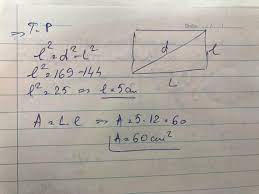 ⇒ T.P
l² = d² - L²
l² = 169 - 144
l² = 25 ⇒ l = 5cm
A = L.l ⇒ A = 5.12 = 60
A = 60 cm²
d
l
L